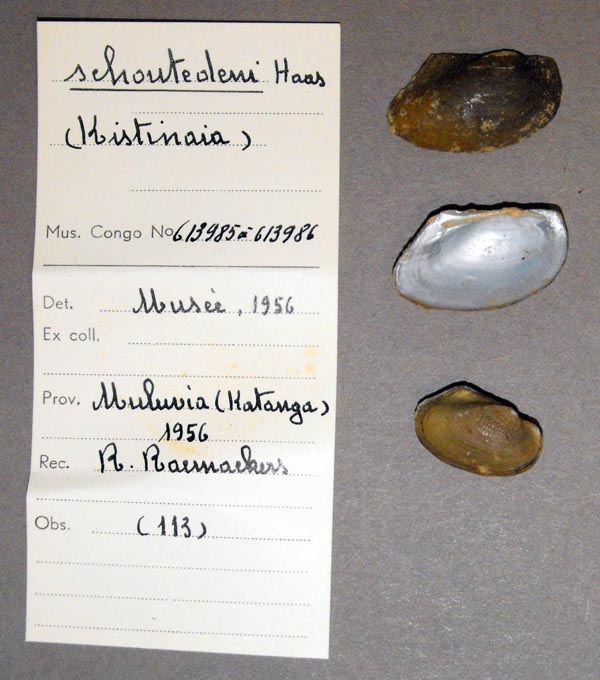 schoutedeni Haas
(Kistinaia)
Mus. Congo No 613985 à 613986
Det. Musée, 1956
Ex coll.
Prov. Muluvia (Katanga)
1956
Rec. R. Raemaekers
Obs. (113)